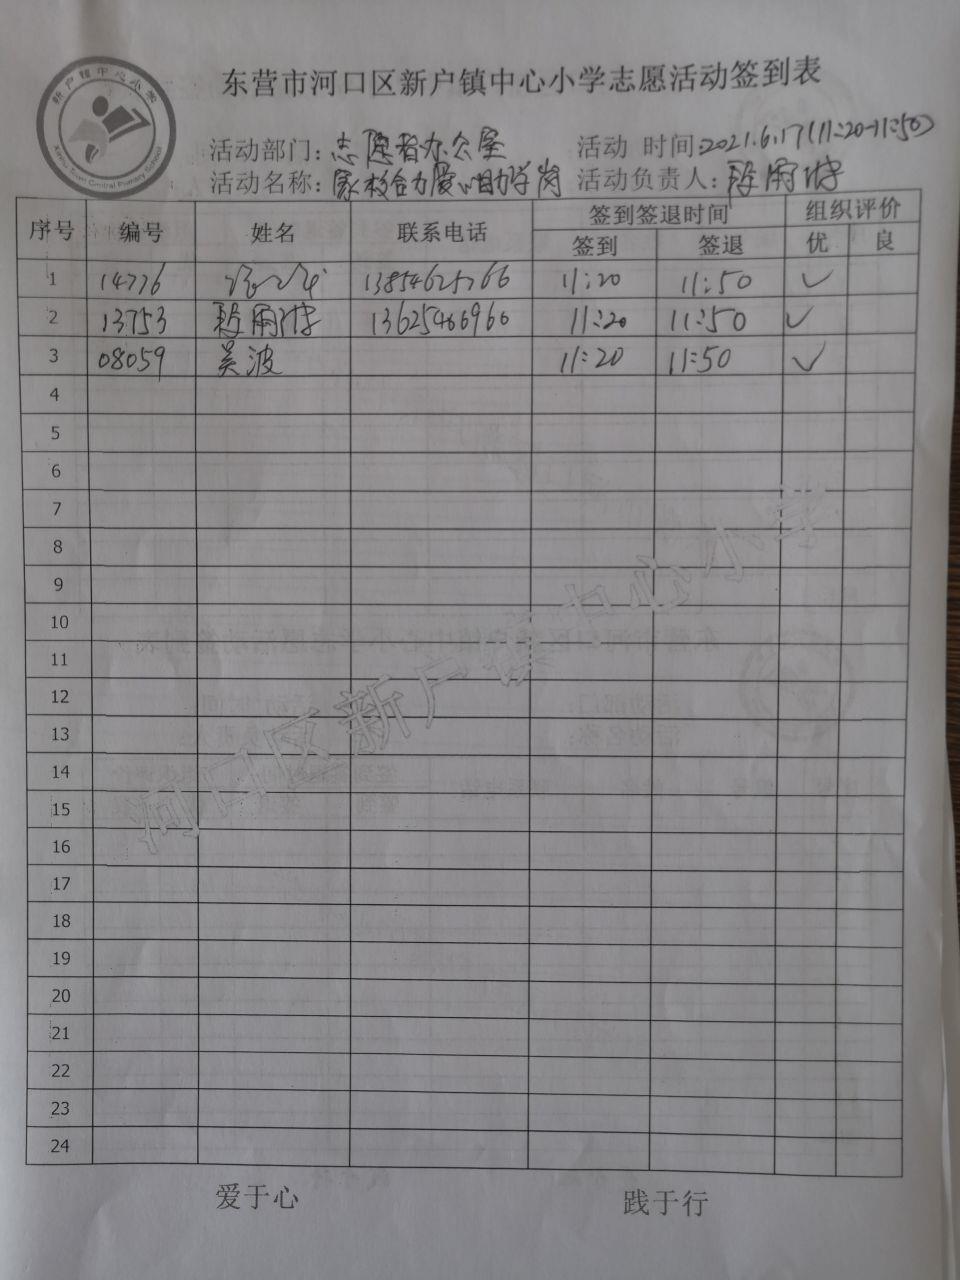 新户镇中心小学
Xinhu Town Central Primary School
东营市河口区新户镇中心小学志愿活动签到表
活动部门：志愿者办公室 活动 时间：2021.6.17(11:20-11:50)
活动名称：家校合力爱心助学岗 活动负责人：
序号 编号 姓名 联系电话 签到签退时间 组织评价
签到 签退 优 良
1 14776 13854625766 11:20 11:50 ✓
2 13753 13625466966 11:20 11:50 ✓
3 08059 吴波 11:20 11:50 ✓
4
5
6
7
8
9
10
11
12
13
14
15
16
17
18
19
20
21
22
23
24
河口区新户镇中心小学
爱于心 践于行